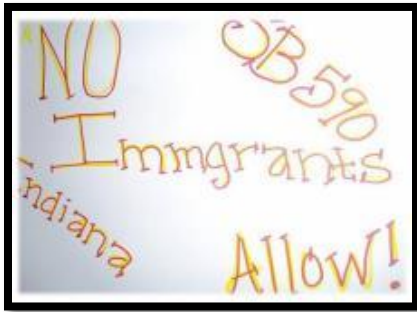 NO
SB 590
Immgrants
Indiana
Allow!